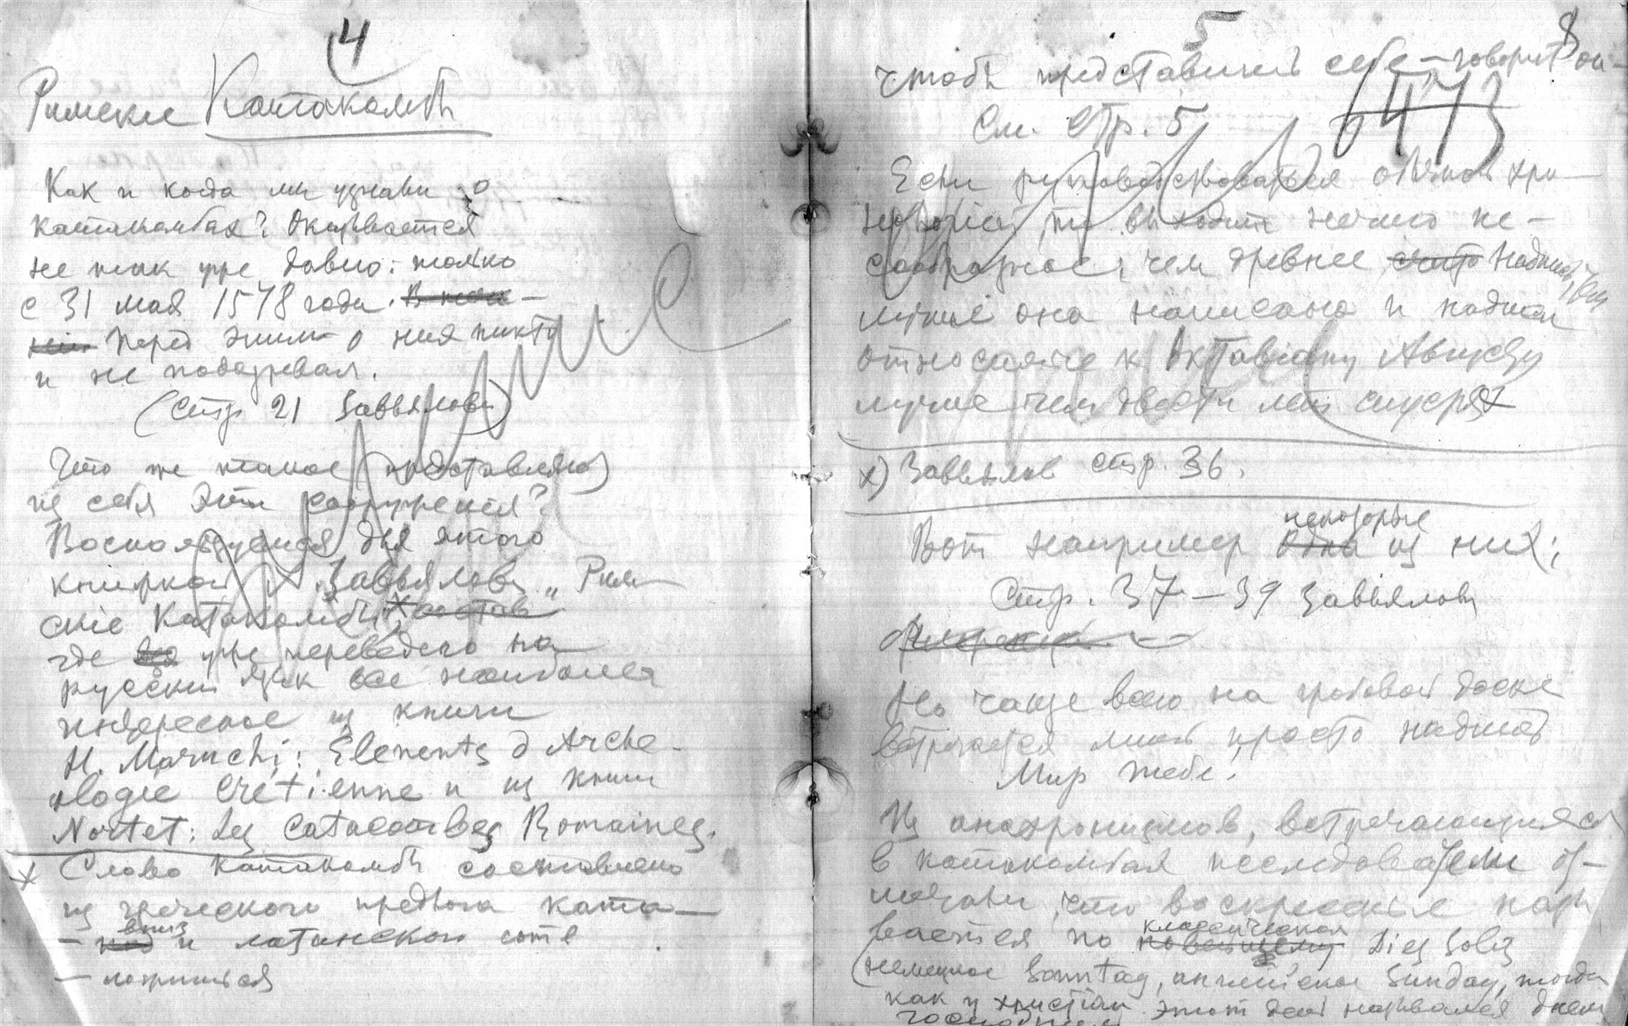 4
Римские Катакомбы
Как и когда мы узнали о
катакомбах? Оказывается
не так уже давно: только
с 31 мая 1578 года.
Перед этим о них никто
и не подозревал.
(Стр 21 Завьялова)
Что же такое представляют
из себя эти сооружения?
Воспользуемся для этого
книжкой Завьялова „Рим-
скіе Катакомбы" x
где уже переведено на
русский язык все наиболее
интересное из книги
H. Maruchi: Elements d Arche-
ologie Cretienne и из книги
Nortet: Les Catacombes Romaines.
x Слово Катакомбы составлено
из греческого предлога ката—
— вниз и латинского
5
8
чтобы представить себе — говорит он —
См. стр. 5
6473
Если руководствоваться обычной хро-
нологіей, то выходит нечто не-
сообразное: чем древнее надпись, тем
лучше она написана и надписи
относящіеся к Октавіану Августу
лучше чем двести лет спустя x
x) Завьялов стр. 36.
Вот например некоторые из них:
Стр. 37 — 39 Завьялова
Но чаще всего на гробовой доске
встречается лишь просто надпись
Мир тебе!
Из анахронизмов, встречающихся
в катакомбах исследователи от-
мечали, что воскресенье назы-
вается по классически Dies Solis
(немецкое Sonntag, английское Sunday, тогда
как у христіан этот день назывался днем
господним